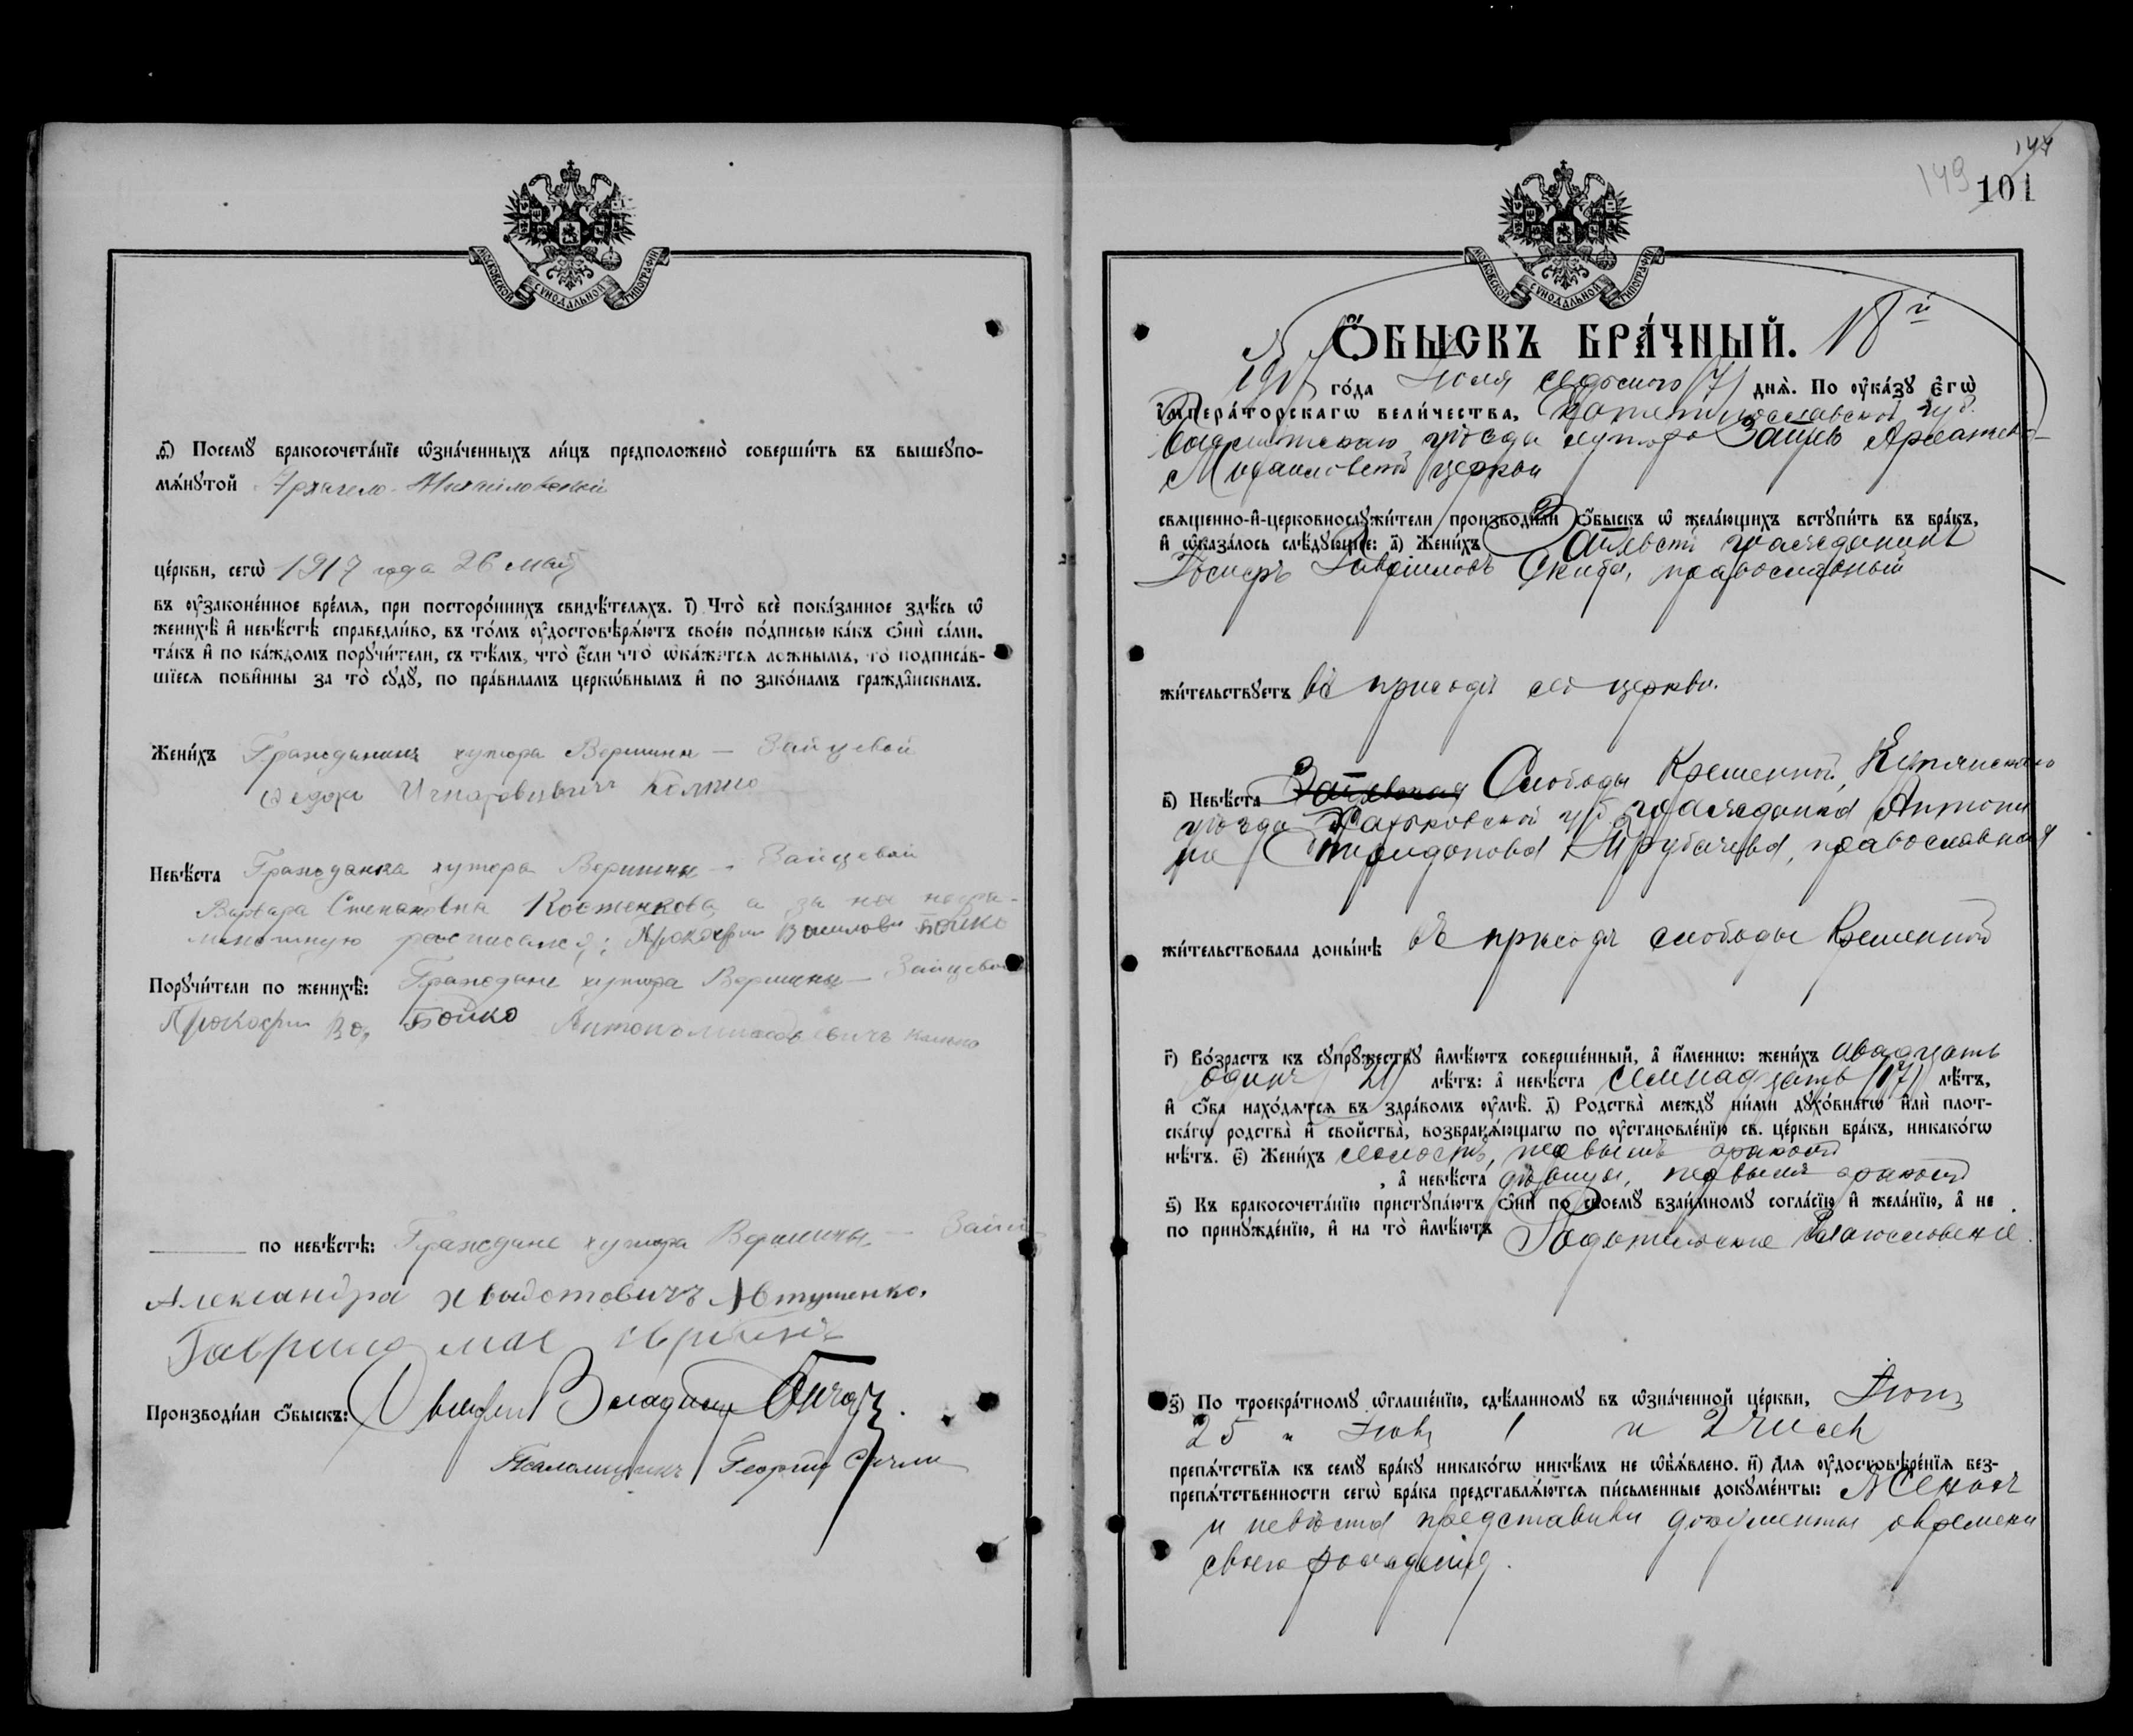 МОСКОВСКОЙ СУНОДАЛЬНОЙ ТИПОГРАФІИ
Ѳ҃) Посемꙋ̀ бракосочета́нїе ѡ҆зна́ченныхъ ли́цъ предположено̀ соверши́ть въ вышеꙋпо-
мѧ́нꙋтой Архангело-Михайловской
це́ркви, сегѡ̀ 1917 года 26 мая
въ ᲂу҆зако́ненное вре́мѧ, при посторо́ннихъ свидѣ́телѧхъ. і҃) Что̀ всѐ пока́занное здѣ́сь ѡ҆
женихѣ̀ и҆ невѣ́стѣ справедли́во, въ то́мъ ᲂу҆достовѣрѧ́ютъ свое́ю по́дписью ка́къ ѻ҆нѝ са́ми,
та́къ и҆ по ка́ждомъ порꙋчи́тели, съ тѣ́мъ, что̀ є҆́сли что̀ ѡ҆ка́жетсѧ ло́жнымъ, то̀ подписа́в-
шїесѧ пови́нны за то̀ сꙋдꙋ̀, по пра́виламъ церкѡ́внымъ и҆ по зако́намъ гражда̂нскимъ.
Жени́хъ Гражданинъ хутора Вершины - Зайцевой
Федоръ Игнатовичъ
Невѣ́ста Гражданка хутора Вершины - Зайцевой
Варвара Степановна Костенкова, а за на негра-
мотную росписался: Прокофи Бойко
Порꙋчи́тели по женихѣ̀: Граждане хутора Вершины - Зайцевой
Прокофи Бойко
по невѣ́стѣ: Граждане хутора Вершины -
Александра Автушенко.
Гаврило
Производи́ли ѻ҆́быскъ: Священ
Псаломщикъ Георгій
147
149
101
МОСКОВСКОЙ СУНОДАЛЬНОЙ ТИПОГРАФІИ
Ѻ҆́БЫСКЪ БРА́ЧНЫЙ. 18й
1917 го́да Іюля седьмого (7) днѧ̀. По ᲂу҆ка́зꙋ є҆гѡ̀
и҆мпера́торскагѡ вели́чества, Екатеринославской губ.
Бахмутскаго уѣзда хутора Зайцева Архангело-
Михайловской церкви
свѧще́нно-и҆-церковнослꙋжи́тели производи́ли ѻ҆́быскъ ѡ҆ жела́ющихъ встꙋпи́ть въ бра́къ,
и҆ ѡ҆каза́лось слѣ́дꙋющее: а҃) Жени́хъ гражданинъ
Гавриловъ Скиба, православный
жи́тельствꙋетъ въ приходѣ сей церкви.
в҃) Невѣ́ста Слободы Кременной, Купянскаго
уѣзда Харьковской губ. гражданка Антони
на Спиридонова Трубачева, православная
жи́тельствовала доны́нѣ въ приходѣ слободы Кременной
г҃) Во́зрастъ къ сꙋпрꙋ́жествꙋ и҆мѣ́ютъ соверше́нный, а҆ и҆́меннѡ: жени́хъ двадцать
одинъ (21) лѣ́тъ: а҆ невѣ́ста семнадцать (17) лѣ́тъ,
и҆ ѻ҆́ба нахо́дѧтсѧ въ здра́вомъ ᲂу҆мѣ̀. д҃) Родства̀ междꙋ̀ ни́ми дꙋхо́внагѡ и҆лѝ плот-
ска́гѡ родства̀ и҆ сво́йства̀, возбранѧ́ющагѡ по ᲂу҆становле́нїю св. це́ркви бра́къ, никако́гѡ
нѣ́тъ. є҃) Жени́хъ холостъ, первымъ бракомъ
, а҆ невѣ́ста дѣвица, первымъ бракомъ
ѕ҃) Къ бракосочета́нїю пристꙋпа́ютъ ѻ҆нѝ по своемꙋ̀ взаи́мномꙋ согла́сїю и҆ жела́нїю, а҆ не
по принꙋжде́нїю, и҆ на то̀ и҆мѣ́ютъ Родительское благословеніе.
з҃) По троекра́тномꙋ ѡ҆глаше́нїю, сдѣ́ланномꙋ въ ѡ҆зна́ченной це́ркви, Іюня
25 и Іюля 1 и 2 чисел
препѧ́тствїѧ къ семꙋ̀ бра́кꙋ никако́гѡ никѣ́мъ не ѡ҆б̾ѧ́влено. и҃) Длѧ ᲂу҆достовѣре́нїѧ без-
препѧ́тственности сегѡ̀ бра́ка представлѧ́ютсѧ пи́сьменные докꙋме́нты: Женихъ
и невѣста представили документы о времени
своего рожденія.